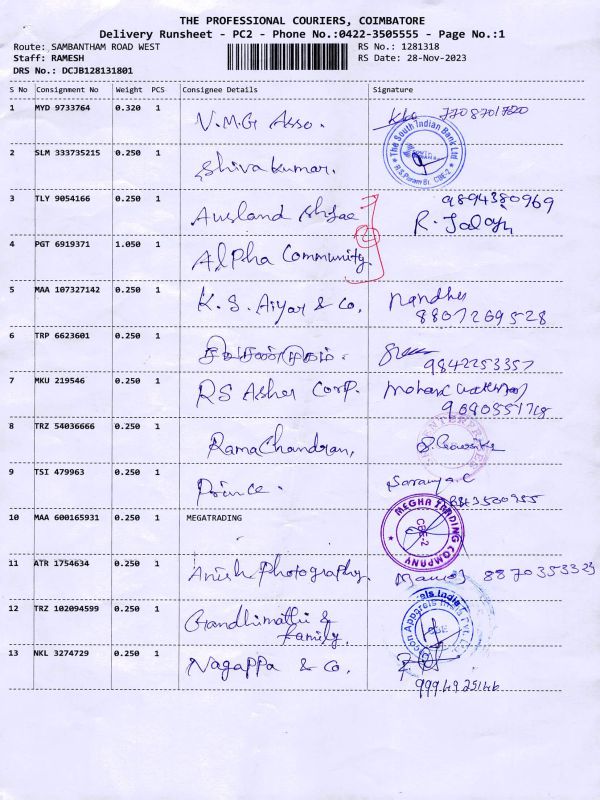 THE PROFESSIONAL COURIERS, COIMBATORE
Delivery Runsheet - PC2 - Phone No.:0422-3505555 - Page No.:1
Route: SAMBANTHAM ROAD WEST RS No.: 1281318
Staff: RAMESH RS Date: 28-Nov-2023
DRS No.: DCJB128131801
S No Consignment No Weight PCS Consignee Details Signature
1 MYD 9733764 0.320 1 V.M.G Asso.
The South Indian Bank Ltd
R.S. Puram Br. CBE-2
2 SLM 333735215 0.250 1 Shivakumar.
3 TLY 9054166 0.250 1 Ausland 9894380969
4 PGT 6919371 1.050 1 Alpha Community
5 MAA 107327142 0.250 1 K.S. Aiyar & Co. Nandhu
8807269528
6 TRP 6623601 0.250 1 9842253357
7 MKU 219546 0.250 1 RS Asher Corp.
8 TRZ 54036666 0.250 1 RamaChandran,
ENTERPRISES
9 TSI 479963 0.250 1 Prince. Saranya.C
10 MAA 600165931 0.250 1 MEGATRADING
MEGHA TRADING COMPANY
CBE-2
11 ATR 1754634 0.250 1 Anish Photography. Manoj 8870353323
12 TRZ 102094599 0.250 1 Gandhimathi &
Family.
13 NKL 3274729 0.250 1 Nagappa & Co.
9994925146